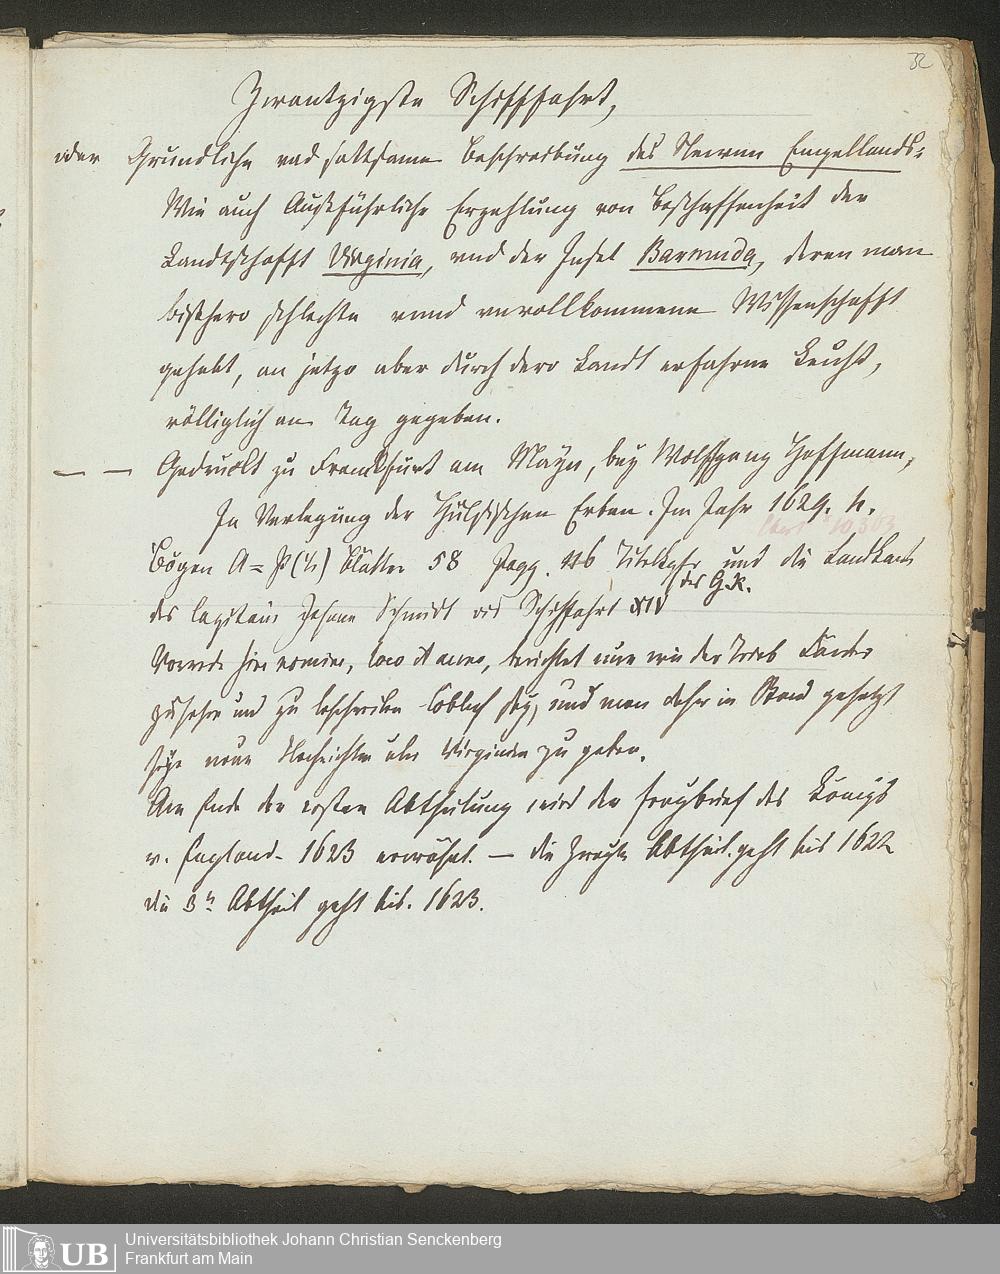 32
Zwantzigste Schifffahrt,
oder Gründliche vnd sattsame Beschreibung des Newen Engellands:
Wie auch Außführliche Erzehlung von Beschaffenheit der
Landtschafft Virginia, vnd der Insel Barmuda, deren man
bißhero schlechte vnnd vnvollkommene Wissenschafft
gehabt, an jetzo aber durch dero Landt erfahrne Leuth,
völliglich an Tag gegeben.
— — Gedruckt zu Franckfurt am Mayn, bey Wolffgang Hoffmann,
In Verlegung der Hulsischen Erben. Im Jahr 1629. 4.
Ebert 10,303
Bogen A = P (½) Blätter 58 Pagg. 116 Titelkpfr und die Landkarte
des Capitain Johann Schmidt aus Schifffahrt XIV der G.R.
Vorrede sine nomine, loco et anno, berichtet nur wie der Länder
zu sehen und zu beschreiben löblich sey, und man daher in Stand gesetzt
seye neue Nachrichten über Virginien zu geben.
Am Ende der ersten Abtheilung wird der Freybrief des Königs
v. England 1623 erwähnt. — die zweyte Abtheil. geht bis 1622
die 3te Abtheil geht bis 1623.
UB Universitätsbibliothek Johann Christian Senckenberg
Frankfurt am Main